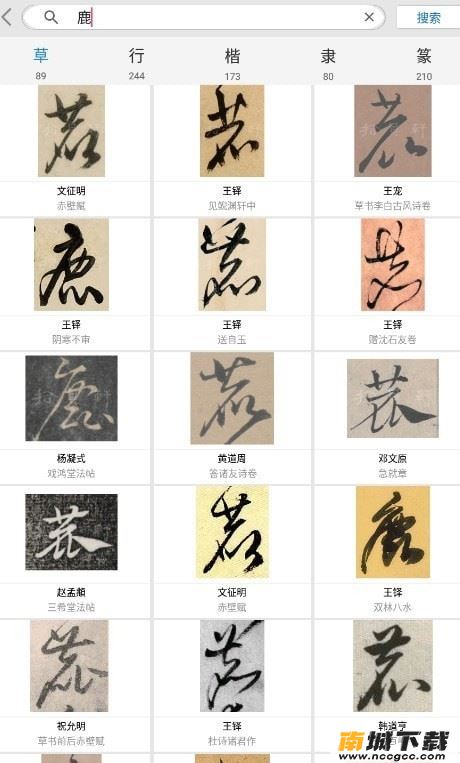 鹿
搜索
草 行 楷 隶 篆
89 244 173 80 210
文征明 王铎 王龙
赤壁赋 见毓渊轩中 草书李白古风诗卷
王铎 王铎 王铎
阴寒不审 送自玉 赠沈石友卷
杨凝式 黄道周 邓文原
戏鸿堂法帖 答诸友诗卷 急就章
赵孟頫 文征明 王铎
三希堂法帖 赤壁赋 双林八水
祝允明 王铎 韩道亨
草书前后赤壁赋 杜诗诸君作
南城下载
www.nccgcc.com